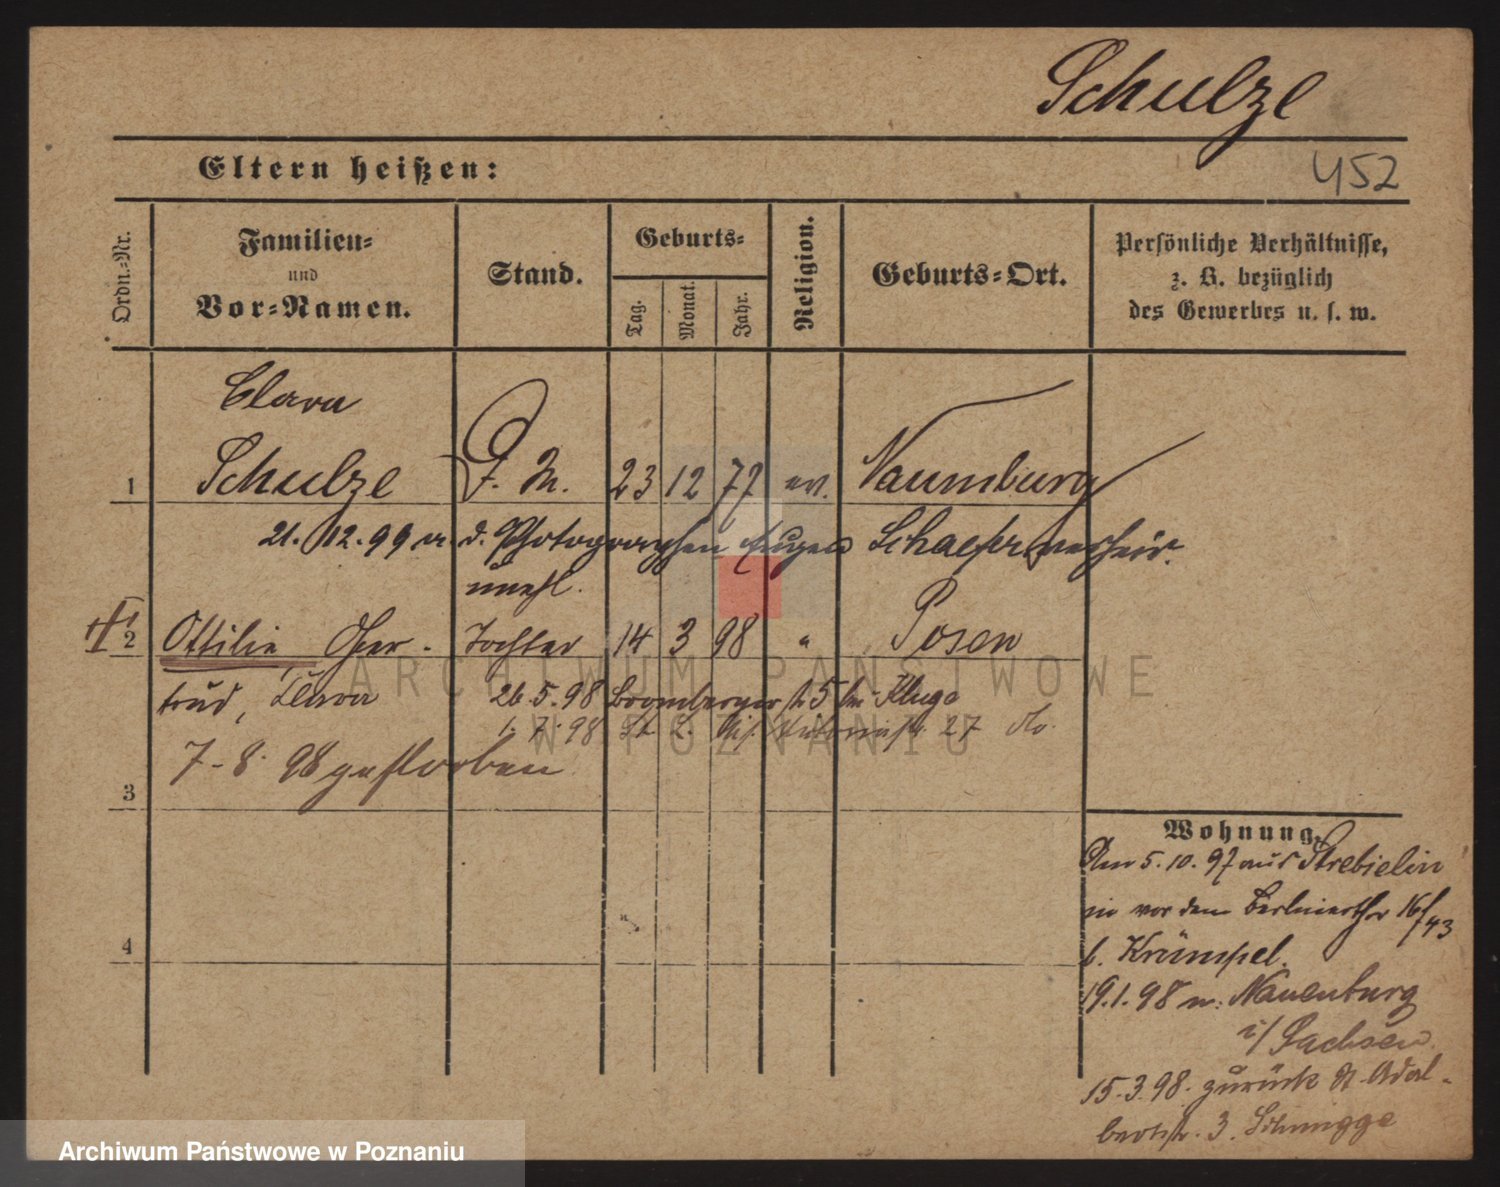 Schulze
Eltern heißen:
452
Ordn.-Nr.
Familien-
und
Vor-Namen.
Stand.
Geburts-
Tag.
Monat.
Jahr.
Religion.
Geburts-Ort.
Persönliche Verhältnisse,
z. B. bezüglich
des Gewerbes u. s. w.
Clara
1 Schulze 23 12 77 ev. Naumburg
21. 12. 99 m. d. Photographen Eugen Schaefer verheir.
unehl.
2 Ottilie Ger- Tochter 14 3 98 " Posen
trud, Clara 26.5.98 Brombergerstr 5 bei Kluge
1. 7. 98 27
7-8. 98 gestorben
3
4
Wohnung.
Am 5.10.97 aus Strebielin
in vor dem Berlinerthor 16/43
b. Krümpel.
19.1.98 n. Nauenburg
i/ Sachsen.
15.3.98. zurück St. Adal-
bertstr. 3.
ARCHIWUM PAŃSTWOWE
W POZNANIU
Archiwum Państwowe w Poznaniu